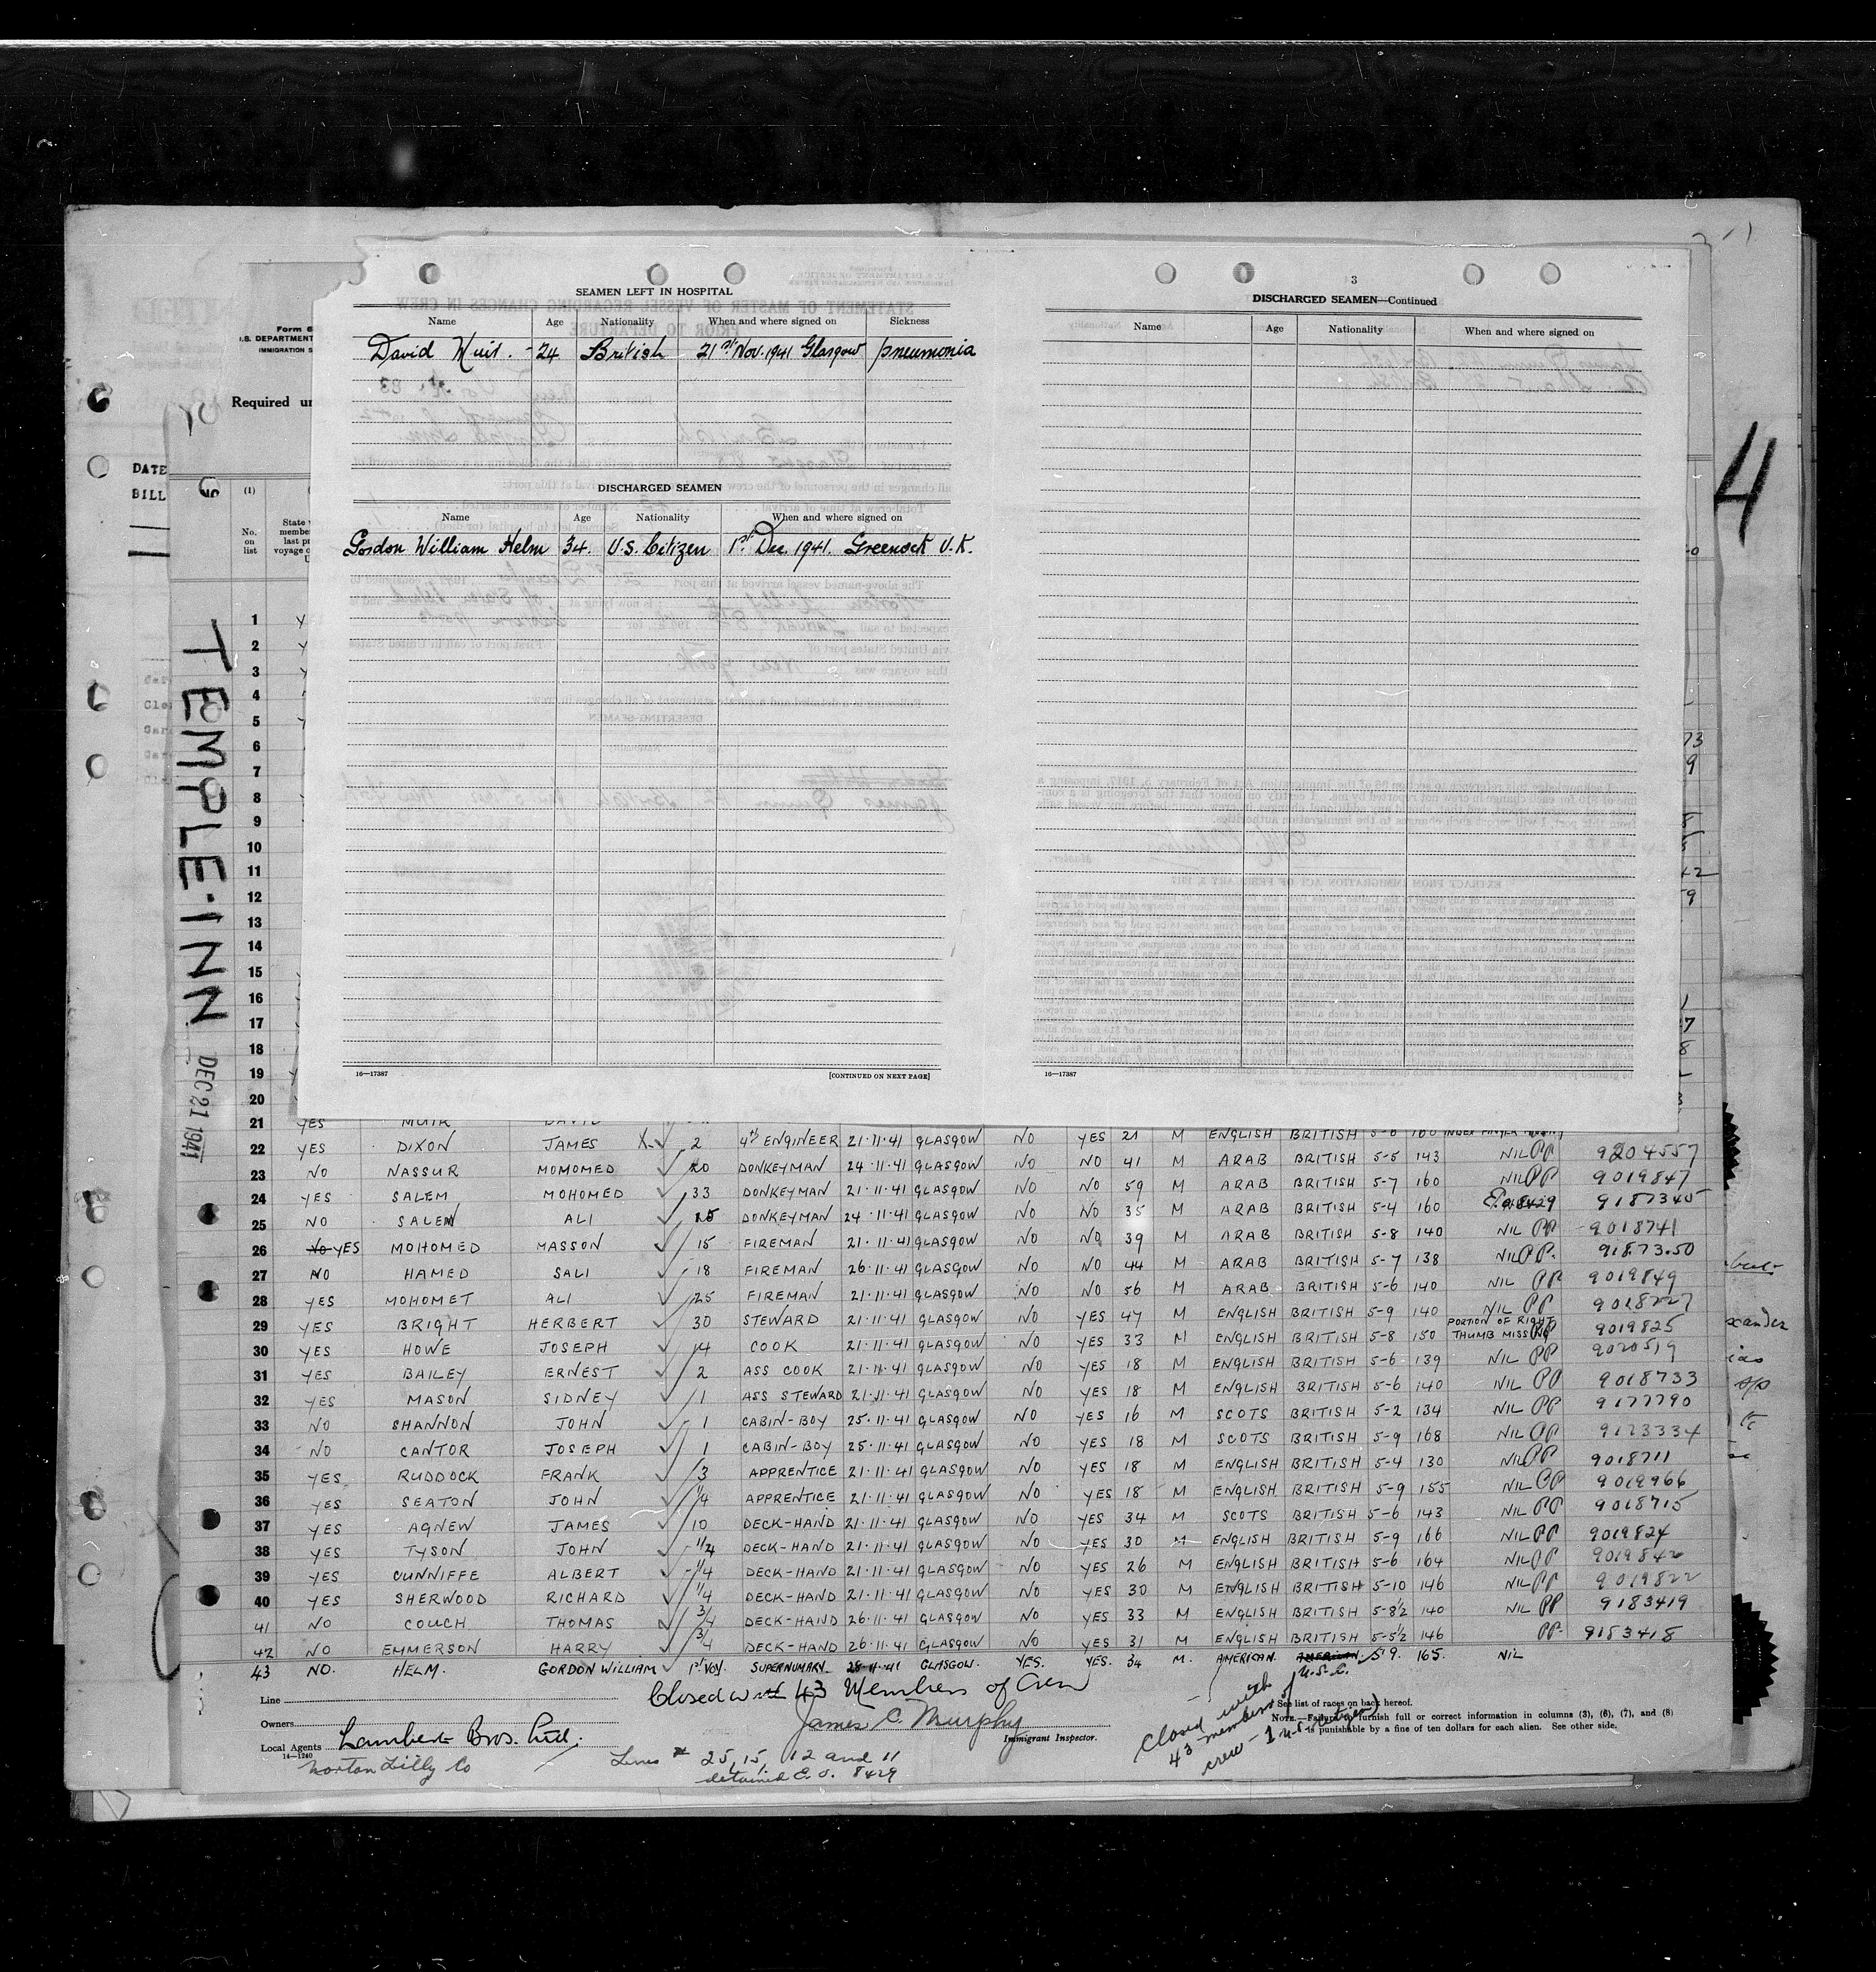 4
TEMPLE·INN
DEC 21 1941
Form 6
U.S. DEPARTMENT
IMMIGRATION S
Required un
DATE
BILL
(1)
No. on list
State w
member
last pr
voyage
SEAMEN LEFT IN HOSPITAL
Name Age Nationality When and where signed on Sickness
David Muir. - 24 British 21st Nov. 1941 Glasgow pneumonia
DISCHARGED SEAMEN
Name Age Nationality When and where signed on
Gordon William Helm 34. U.S. Citizen 1st Dec. 1941. Greenock U.K.
16—17387 [CONTINUED ON NEXT PAGE]
3
DISCHARGED SEAMEN—Continued
Name Age Nationality When and where signed on
16—17387
1
2
3
4
5
6
7
8
9
10
11
12
13
14
15
16
17
18
19
20
21 YES MUIR DAVID
22 YES DIXON JAMES X✓ 2 4th ENGINEER 21·11·41 GLASGOW NO YES 21 M ENGLISH BRITISH
23 NO NASSUR MOMOMED ✓ 20 DONKEYMAN 24·11·41 GLASGOW NO NO 41 M ARAB BRITISH 5-5 143 NIL PP 9204557
24 YES SALEM MOHOMED ✓ 33 DONKEYMAN 21·11·41 GLASGOW NO NO 59 M ARAB BRITISH 5-7 160 NIL PP 9019847
25 NO SALEM ALI ✓ 15 DONKEYMAN 24·11·41 GLASGOW NO NO 35 M ARAB BRITISH 5-4 160 9187345
26 NO YES MOHOMED MASSON ✓ 15 FIREMAN 21·11·41 GLASGOW NO NO 39 M ARAB BRITISH 5-8 140 NIL PP 9018741
27 NO HAMED SALI ✓ 18 FIREMAN 26·11·41 GLASGOW NO NO 44 M ARAB BRITISH 5-7 138 NIL PP. 9187350
28 YES MOHOMET ALI ✓ 25 FIREMAN 21·11·41 GLASGOW NO NO 56 M ARAB BRITISH 5-6 140 NIL PP 9019849
29 YES BRIGHT HERBERT ✓ 30 STEWARD 21·11·41 GLASGOW NO YES 47 M ENGLISH BRITISH 5-9 140 NIL PP 9018227
30 YES HOWE JOSEPH ✓ 14 COOK 21·11·41 GLASGOW NO YES 33 M ENGLISH BRITISH 5-8 150 PORTION OF RIGHT THUMB MISSING PP 9019825
31 YES BAILEY ERNEST ✓ 2 ASS COOK 21·11·41 GLASGOW NO YES 18 M ENGLISH BRITISH 5-6 139 NIL PP 9020519
32 YES MASON SIDNEY ✓ 1 ASS STEWARD 21·11·41 GLASGOW NO YES 18 M ENGLISH BRITISH 5-6 140 NIL PP 9018733
33 NO SHANNON JOHN ✓ 1 CABIN-BOY 25·11·41 GLASGOW NO YES 16 M SCOTS BRITISH 5-2 134 NIL PP 9177790
34 NO CANTOR JOSEPH ✓ 1 CABIN-BOY 25·11·41 GLASGOW NO YES 18 M SCOTS BRITISH 5-9 168 NIL PP 9123334
35 YES RUDDOCK FRANK ✓ 3 APPRENTICE 21·11·41 GLASGOW NO YES 18 M ENGLISH BRITISH 5-4 130 NIL PP 9018711
36 YES SEATON JOHN ✓ 1/4 APPRENTICE 21·11·41 GLASGOW NO YES 18 M ENGLISH BRITISH 5-9 155 NIL PP 9019966
37 YES AGNEW JAMES ✓ 10 DECK-HAND 21·11·41 GLASGOW NO YES 34 M SCOTS BRITISH 5-6 143 NIL PP 9018715
38 YES TYSON JOHN ✓ 1/4 DECK-HAND 21·11·41 GLASGOW NO YES 30 M ENGLISH BRITISH 5-9 166 NIL PP 9019824
39 YES CUNNIFFE ALBERT ✓ 1/4 DECK-HAND 21·11·41 GLASGOW NO YES 26 M ENGLISH BRITISH 5-6 164 NIL PP 9019842
40 YES SHERWOOD RICHARD ✓ 1/4 DECK-HAND 21·11·41 GLASGOW NO YES 30 M ENGLISH BRITISH 5-10 146 NIL PP 9019822
41 NO COUCH THOMAS ✓ 3/4 DECK-HAND 26·11·41 GLASGOW NO YES 33 M ENGLISH BRITISH 5-8½ 140 NIL PP 9183419
42 NO EMMERSON HARRY ✓ 3/4 DECK-HAND 26·11·41 GLASGOW NO YES 31 M ENGLISH BRITISH 5-5½ 146 PP. 9183418
43 NO. HELM. GORDON WILLIAM ✓ 1st VOY. SUPERNUMARY 28·11·41 GLASGOW. YES. YES. 34 M. AMERICAN. AMERICAN U.S.C. 5 9. 165. NIL
Closed with 43 Members of Crew
James C. Murphy
Immigrant Inspector.
Line
Owners
Local Agents Lambert Bros. Ltd.
14—1240
Norton Lilly Co
Lines # 25, 15, 12 and 11
detained E.O. 8429
Closed with
43 members of
crew - 1 U.S. citizen)
See list of races on back hereof.
NOTE.—Failure to furnish full or correct information in columns (3), (6), (7), and (8)
is punishable by a fine of ten dollars for each alien. See other side.